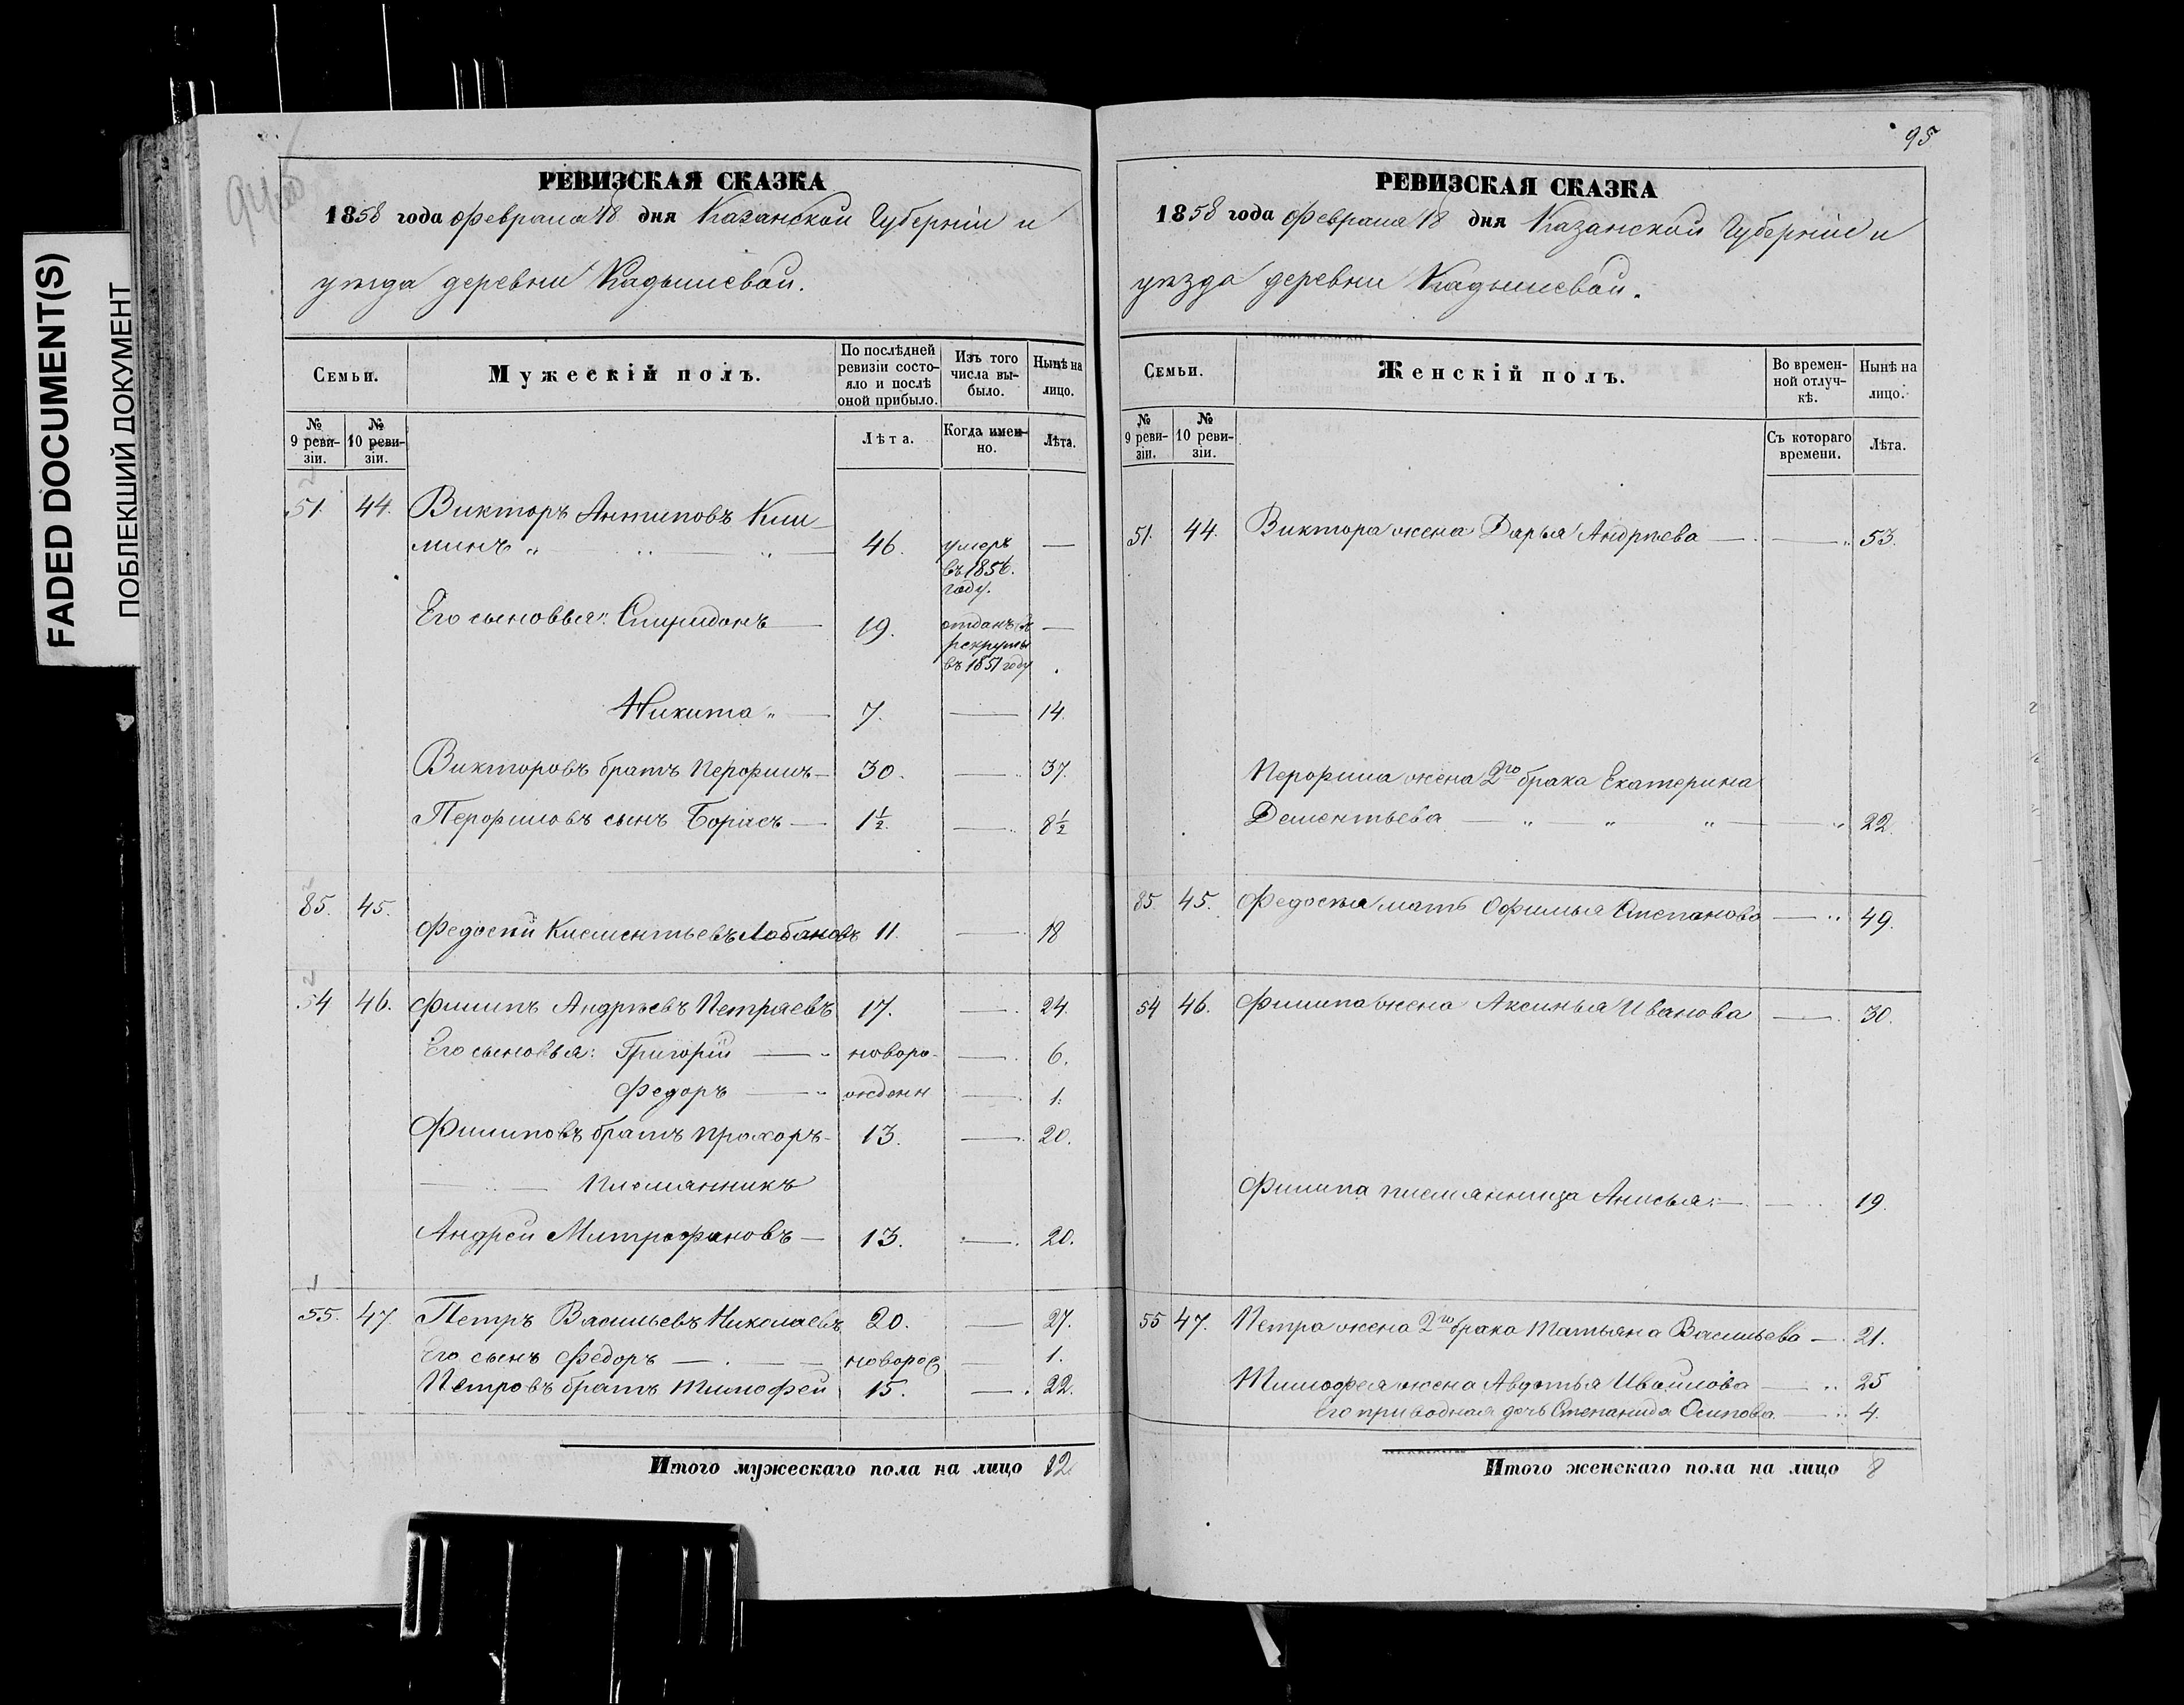 FADED DOCUMENT(S)
ПОБЛЕКШИЙ ДОКУМЕНТ
94об
РЕВИЗСКАЯ СКАЗКА
1858 года февраля 18 дня Казанской Губерніи и
уѣзда деревни Кадышевой.
Семьи.
Мужескій полъ.
По послѣдней ревизіи состояло и послѣ оной прибыло.
Изъ того числа выбыло.
Нынѣ на лицо.
№ 9 ревизіи.
№ 10 ревизіи.
Лѣта.
Когда именно.
Лѣта.
51. 44. Викторъ Антиповъ Кли-
минъ „ 46. умеръ —
въ 1856.
году.
Его сыновья: Спиридонъ — 19. отданъ въ —
рекруты
въ 1851 году
Никита „ — 7. — 14.
Викторовъ братъ Перофилъ — 30. — 37.
Перофиловъ сынъ Борисъ — 1½. — 8½
85. 45.
Федосѣй Клементьевъ Лобановъ 11. — 18
54 46. Филипъ Андрѣевъ Петряевъ 17. — 24.
Его сыновья: Григорій — новоро- — 6.
Федоръ — жденн — 1.
Филиповъ братъ Прохоръ — 13. — 20.
— племянникъ
Андрей Митрофановъ — 13. — 20.
55. 47. Петръ Васильевъ Николаевъ 20. — 27.
Его сынъ Федоръ — новорож — 1.
Петровъ братъ Тимофей 15. — 22.
Итого мужескаго пола на лицо 12
95
РЕВИЗСКАЯ СКАЗКА
1858 года февраля 18 дня Казанской Губерніи и
уѣзда деревни Кадышевой.
Семьи.
Женскій полъ.
Во временной отлучкѣ.
Нынѣ на лицо.
№ 9 ревизіи.
№ 10 ревизіи.
Съ котораго времени.
Лѣта.
51. 44. Виктора жена Дарья Андрѣева — 53.
Перофила жена 2го брака Екатерина
Дементьева — „ „ „ — 22.
85. 45. Федосѣя мать Офимья Степанова — 49.
54 46. Филипа жена Аксинья Иванова — 30.
Филипа племянница Анисья — 19.
55 47. Петра жена 2го брака Татьяна Васильева — 21.
Тимофея жена Авдотья Ивойлова — 25
Его приводная дочь Степанида Осипова — 4.
Итого женскаго пола на лицо 8